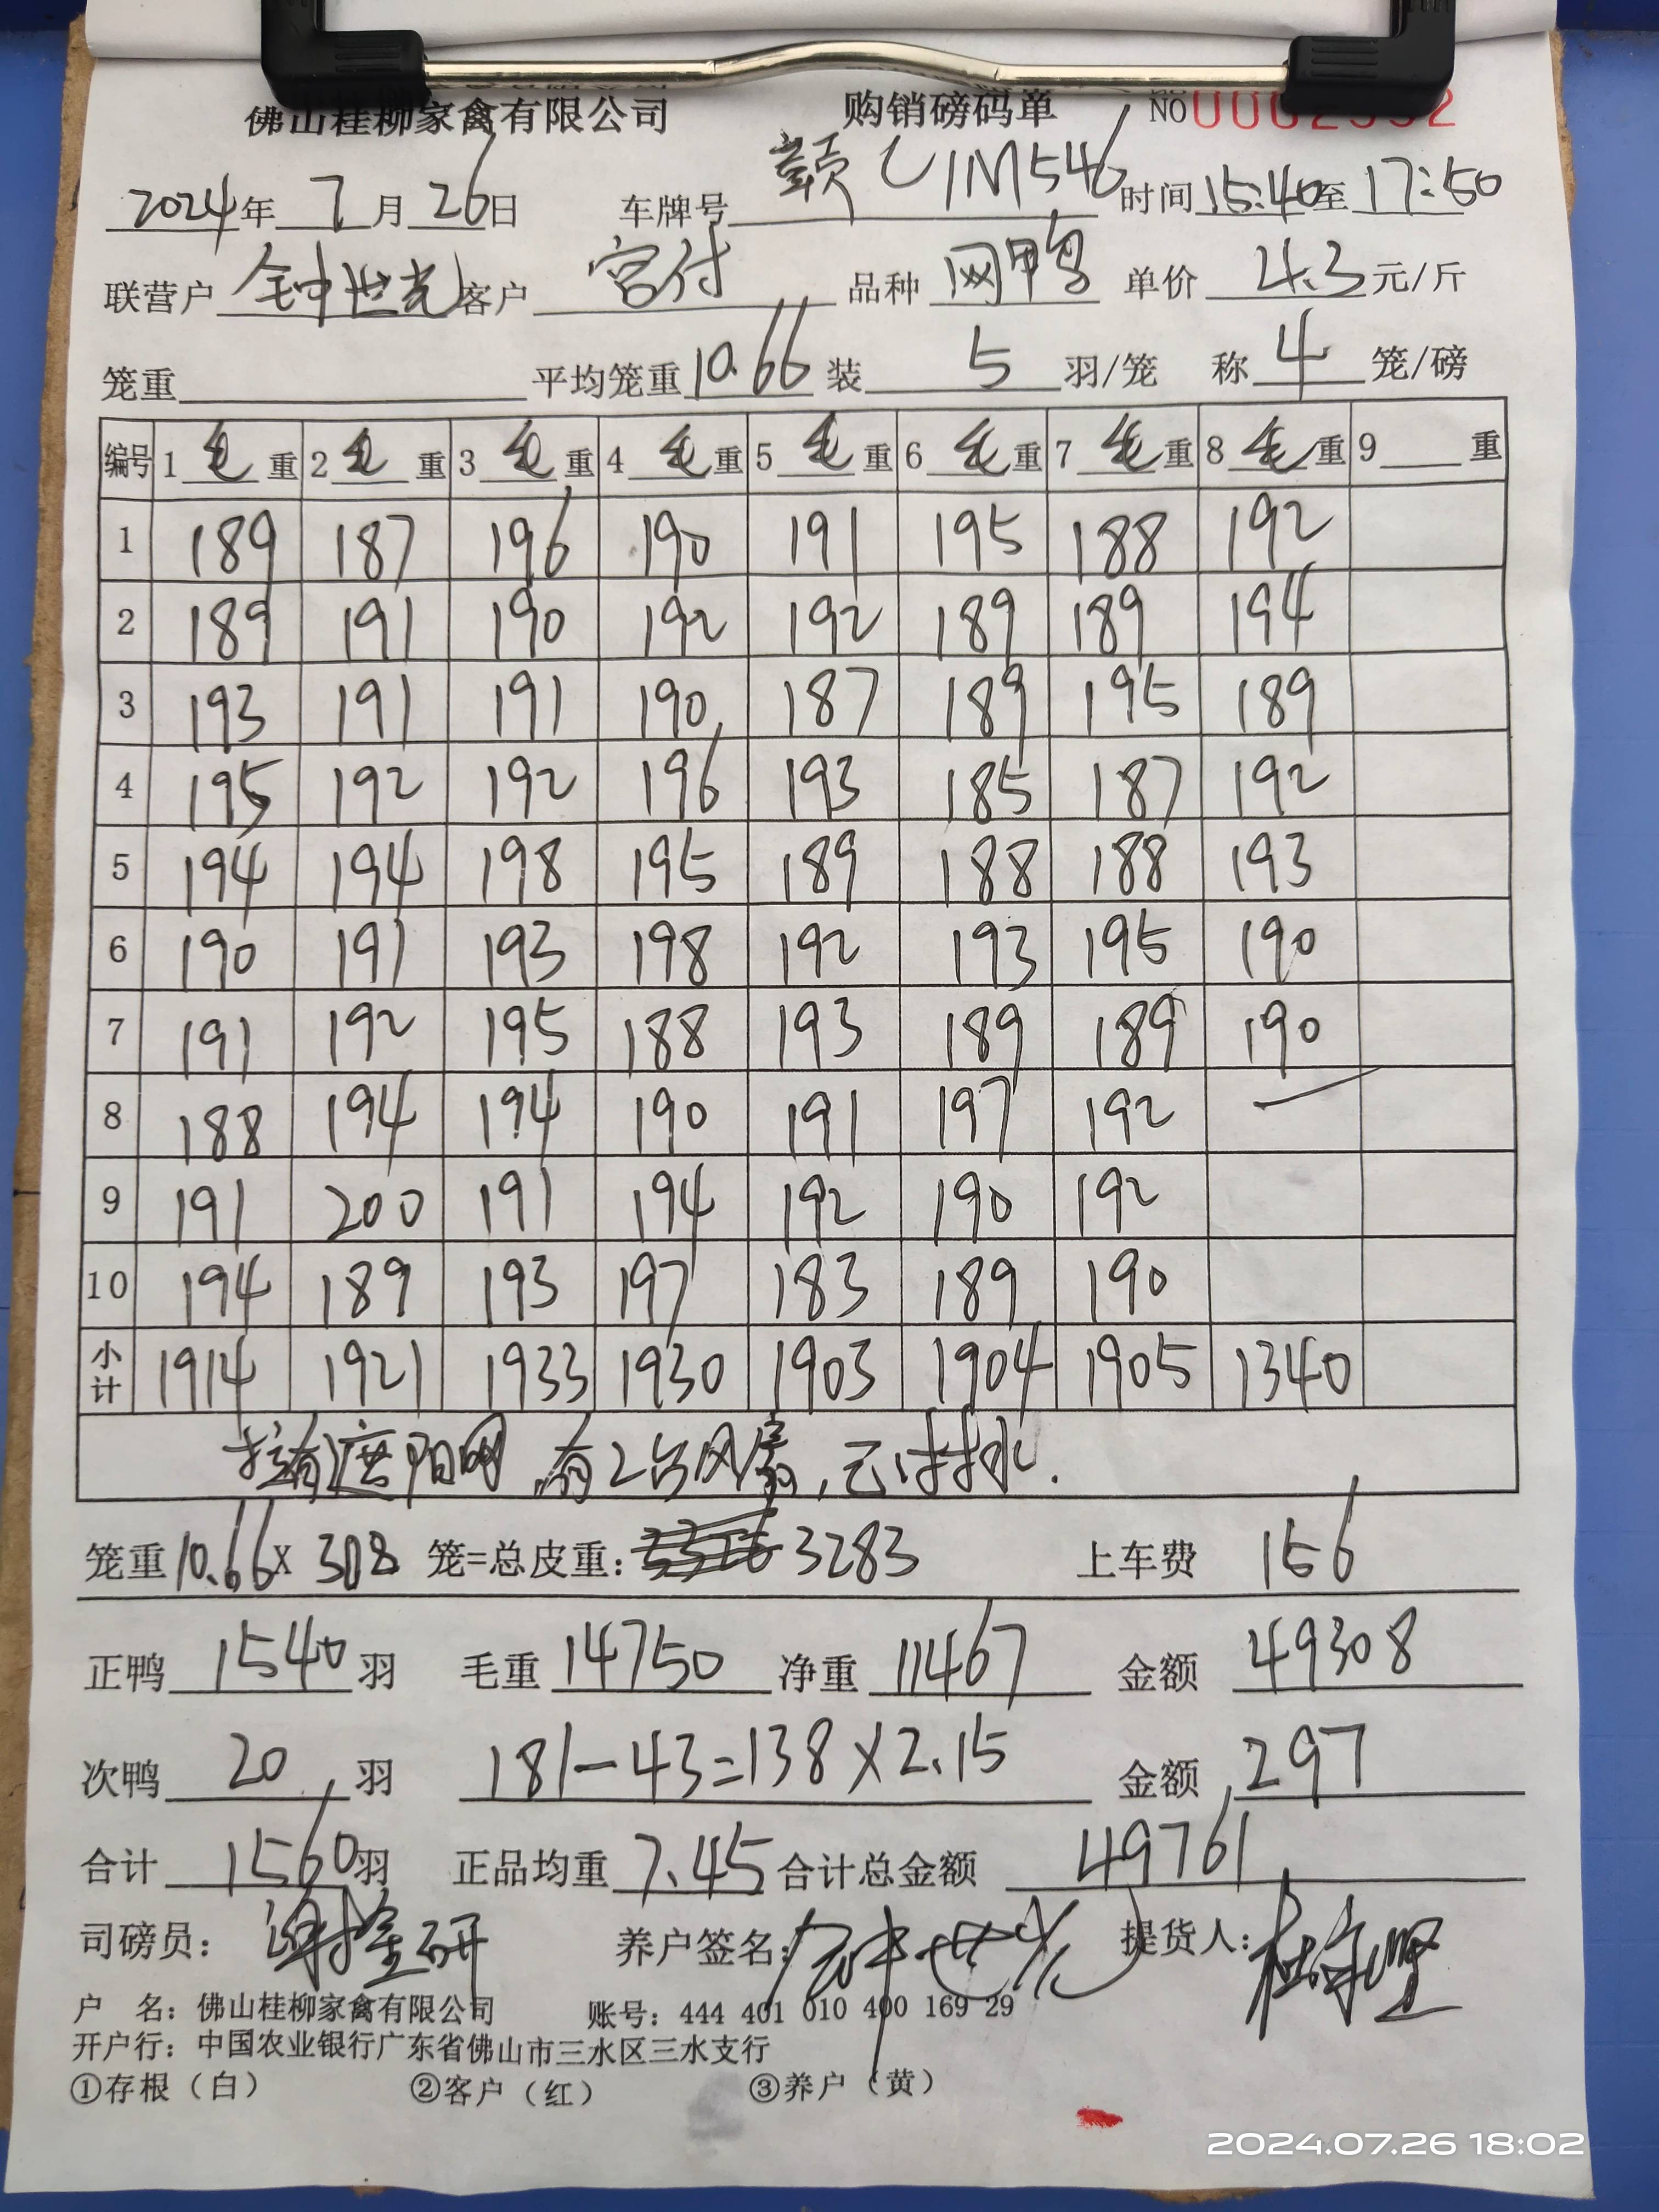 佛山桂柳家禽有限公司 购销磅码单 NO
2024年 7月 26日 车牌号 赣C1M546 时间 15:40至 17:50
联营户 钟世光 客户 宫付 品种 网鸭 单价 4.3 元/斤
笼重 平均笼重 10.66 装 5 羽/笼 称 4 笼/磅
编号 1 毛 重 2 毛 重 3 毛 重 4 毛 重 5 毛 重 6 毛 重 7 毛 重 8 毛 重 9 重
1 189 187 196 190 191 195 188 192
2 189 191 190 192 192 189 189 194
3 193 191 191 190 187 189 195 189
4 195 192 192 196 193 185 187 192
5 194 194 198 195 189 188 188 193
6 190 191 193 198 192 193 195 190
7 191 192 195 188 193 189 189 190
8 188 194 194 190 191 197 192
9 191 200 191 194 192 190 192
10 194 189 193 197 183 189 190
小计 1914 1921 1933 1930 1903 1904 1905 1340
有遮阳网,有2台风扇,已
笼重 10.66 X 308 笼=总皮重: 3283 上车费 156
正鸭 1540 羽 毛重 14750 净重 11467 金额 49308
次鸭 20 羽 181-43=138×2.15 金额 297
合计 1560 羽 正品均重 7.45 合计总金额 49761
司磅员: 养户签名: 钟世光 提货人:
户 名: 佛山桂柳家禽有限公司 账号: 444 401 010 400 169 29
开户行: 中国农业银行广东省佛山市三水区三水支行
①存根(白) ②客户(红) ③养户(黄)
2024.07.26 18:02